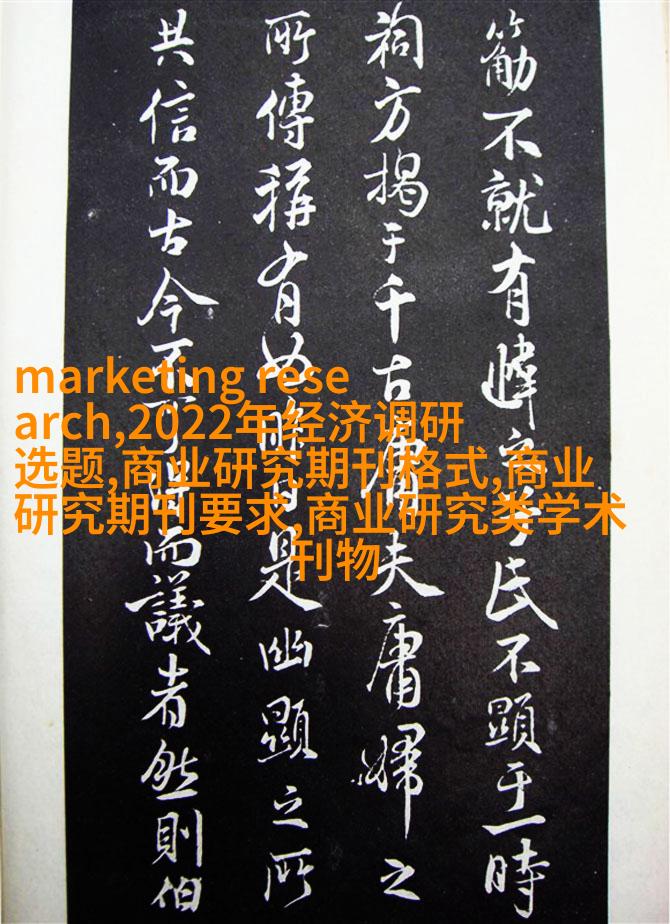 不就有氏不顯于一時
祠方揭于千古庸夫庸婦之
所傳稱有如日是幽顯之所
共信而古今不可得而議者然則伯
marketing rese
arch,2022年经济调研
选题,商业研究期刊格式,商业
研究期刊要求,商业研究类学术
刊物